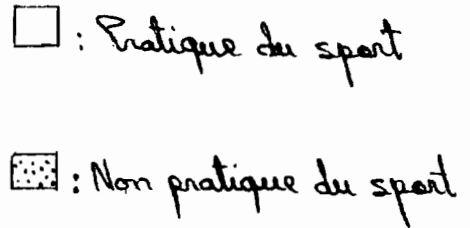 : Pratique du sport
: Non pratique du sport